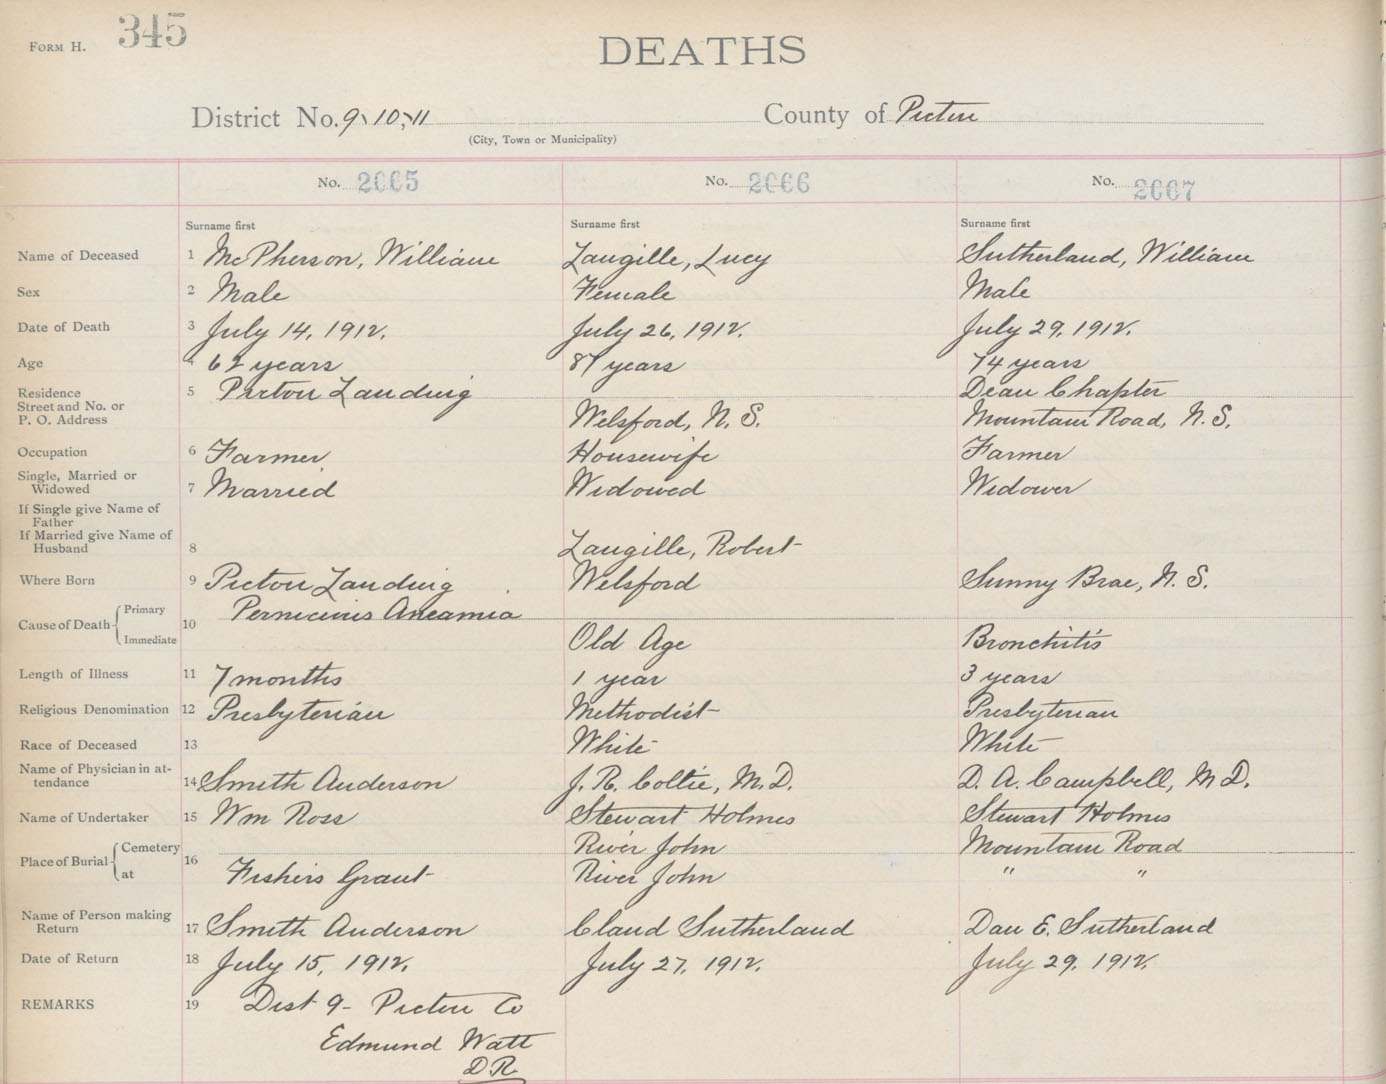 FORM H. 345
DEATHS
District No. 9, 10, 11 County of Pictou
(City, Town or Municipality)
No. 2665 No. 2666 No. 2667
Surname first Surname first Surname first
Name of Deceased 1 McPherson, William Langille, Lucy Sutherland, William
Sex 2 Male Female Male
Date of Death 3 July 14, 1912. July 26, 1912. July 29, 1912.
Age 4 62 years 87 years 74 years
Residence 5 Pictou Landing Dean Chapter
Street and No. or
P. O. Address Welsford, N. S. Mountain Road, N. S.
Occupation 6 Farmer Housewife Farmer
Single, Married or
Widowed 7 Married Widowed Widower
If Single give Name of
Father
If Married give Name of
Husband 8 Langille, Robert
Where Born 9 Pictou Landing Welsford Sunny Brae, N. S.
Cause of Death Primary 10 Pernicious Aneamia
Immediate Old Age Bronchitis
Length of Illness 11 7 months 1 year 3 years
Religious Denomination 12 Presbyterian Methodist Presbyterian
Race of Deceased 13 White White
Name of Physician in at-
tendance 14 Smith Anderson J. R. Collie, M.D. D. A. Campbell, M D.
Name of Undertaker 15 Wm Ross Stewart Holmes Stewart Holmes
Place of Burial Cemetery 16 River John Mountain Road
at Fishers Grant River John " "
Name of Person making
Return 17 Smith Anderson Claud Sutherland Dan E. Sutherland
Date of Return 18 July 15, 1912. July 27, 1912. July 29, 1912.
REMARKS 19 Dist 9 - Pictou Co
Edmund Watt
D.R.